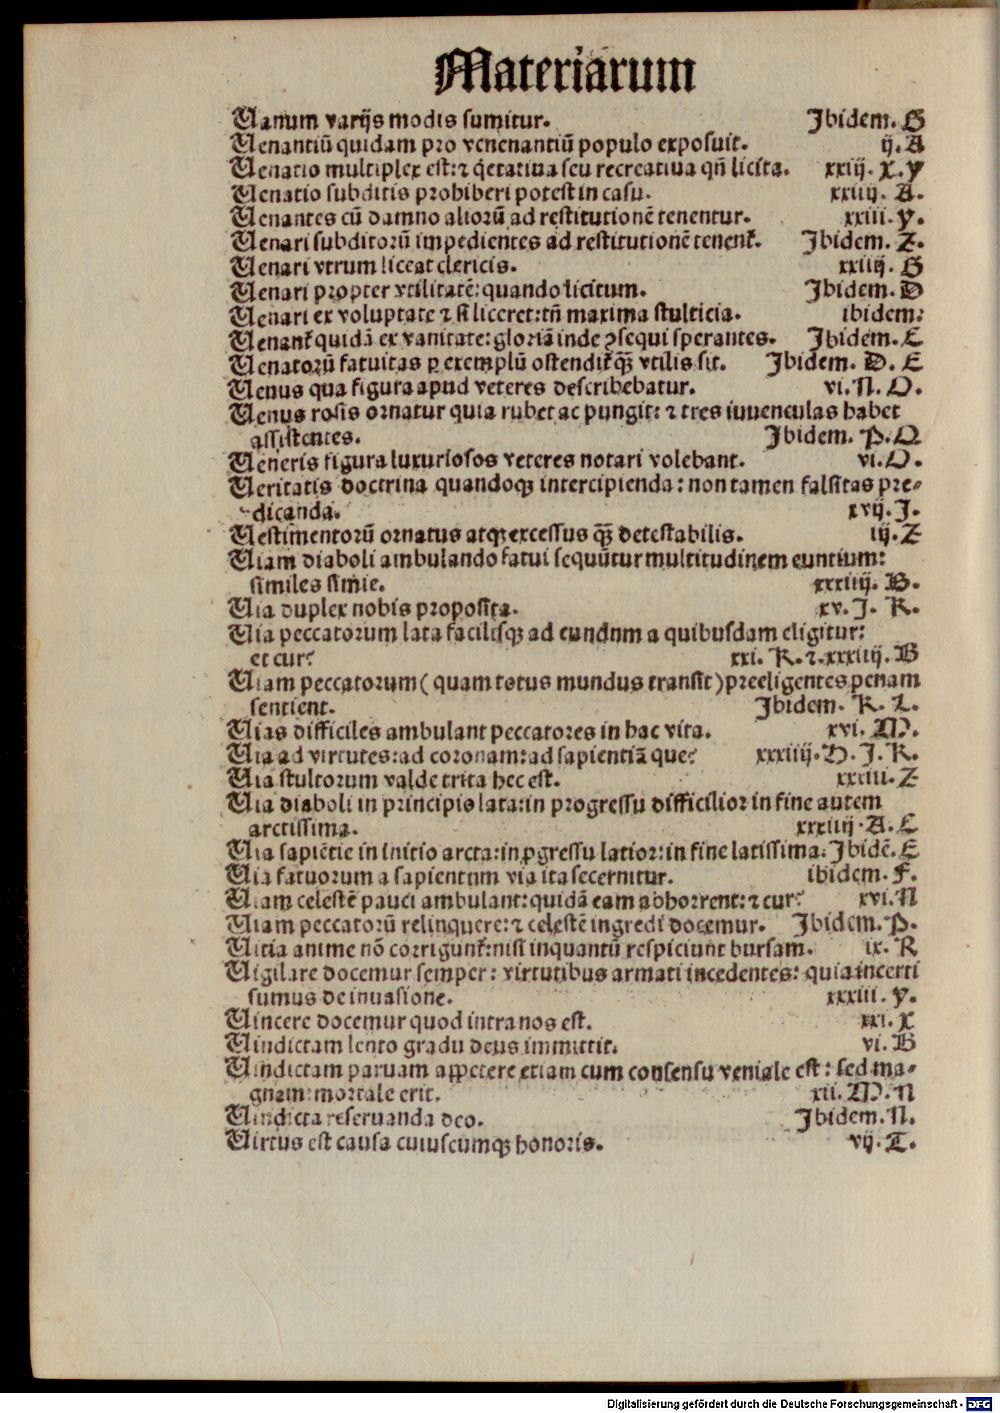 Materiarum
Vanum varijs modis sumitur. Ibidem. G
Venantiū quidam pro venenantiū populo exposuit. ij. A
Venatio multiplex est: ⁊ q̄etatiua seu recreatiua qn̄ licita. xxiij. X. Y
Venatio subditis prohiberi potest in casu. xxiiij. A.
Venantes cū damno aliorū ad restitutionē tenentur. xxiii. Y.
Venari subditorū impedientes ad restitutionē tenenť. Ibidem. Z.
Venari vtrum liceat clericis. xxiiij. G
Venari propter vtilitatē: quando licitum. Ibidem. D
Venari ex voluptate ⁊ si liceret: tn̄ maxima stulticia. ibidem:
Venanť quidā ex vanitate: gloriā inde ꝯsequi sperantes. Ibidem. C
Venatorū fatuitas ꝑ exemplū ostendiť qꝫ̄ vtilis sit. Ibidem. D. E
Venus qua figura apud veteres describebatur. vi. N. O.
Venus rosis ornatur quia rubet ac pungit: ⁊ tres iuuenculas habet
assistentes. Ibidem. P. Q
Veneris figura luxuriosos veteres notari volebant. vi. O.
Veritatis doctrina quandoqꝫ intercipienda: non tamen falsitas pre-
dicanda. xvij. I.
Vestimentorū ornatus atqꝫ excessus qꝫ̄ detestabilis. iij. Z
Viam diaboli ambulando fatui sequūtur multitudinem euntium:
similes simie. xxxiiij. B.
Via duplex nobis proposita. xv. I. K.
Via peccatorum lata facilisqꝫ ad eundum a quibusdam eligitur:
et cur? xxi. K. ⁊. xxxiiij. B
Viam peccatorum (quam totus mundus transit) preeligentes penam
sentient. Ibidem. K. L.
Vias difficiles ambulant peccatores in hac vita. xvi. M.
Via ad virtutes: ad coronam: ad sapientiā que? xxxiiij. H. I. K.
Via stultorum valde trita hec est. xxxiii. Z
Via diaboli in principio lata: in progressu difficilior in fine autem
arctissima. xxxiiij. A. C
Via sapiētie in initio arcta: in ꝓgressu latior: in fine latissima. Ibidē. E
Via fatuorum a sapientum via ita secernitur. ibidem. F.
Viam celestē pauci ambulant: quidā eam abhorrent: ⁊ cur? xvi. N
Viam peccatorū relinquere: ⁊ celestē ingredi docemur. Ibidem. P.
Vitia anime nō corrigunť: nisi inquantū respiciunt bursam. ix. R
Vigilare docemur semper: virtutibus armati incedentes: quia incerti
sumus de inuasione. xxxiii. Y.
Vincere docemur quod intra nos est. xxi. X
Vindictam lento gradu deus immittit. vi. B
Vindictam paruam appetere etiam cum consensu veniale est: sed ma-
gnam: mortale erit. xii. M. N
Vindicta reseruanda deo. Ibidem. N.
Virtus est causa cuiuscumqꝫ honoris. vij. T.
Digitalisierung gefördert durch die Deutsche Forschungsgemeinschaft - DFG